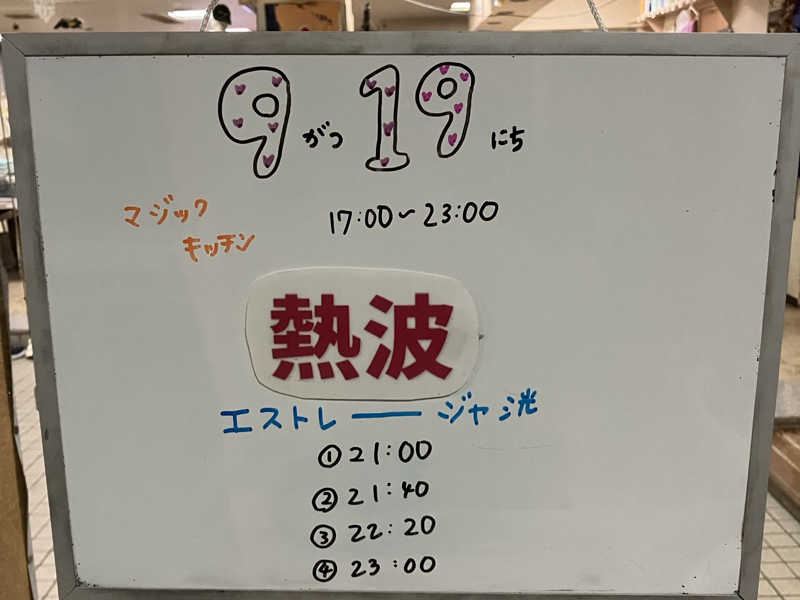 9がつ19にち
マジック
キッチン
17:00~23:00
熱波
エストレーージャ洸
①21:00
②21:40
③22:20
④23:00